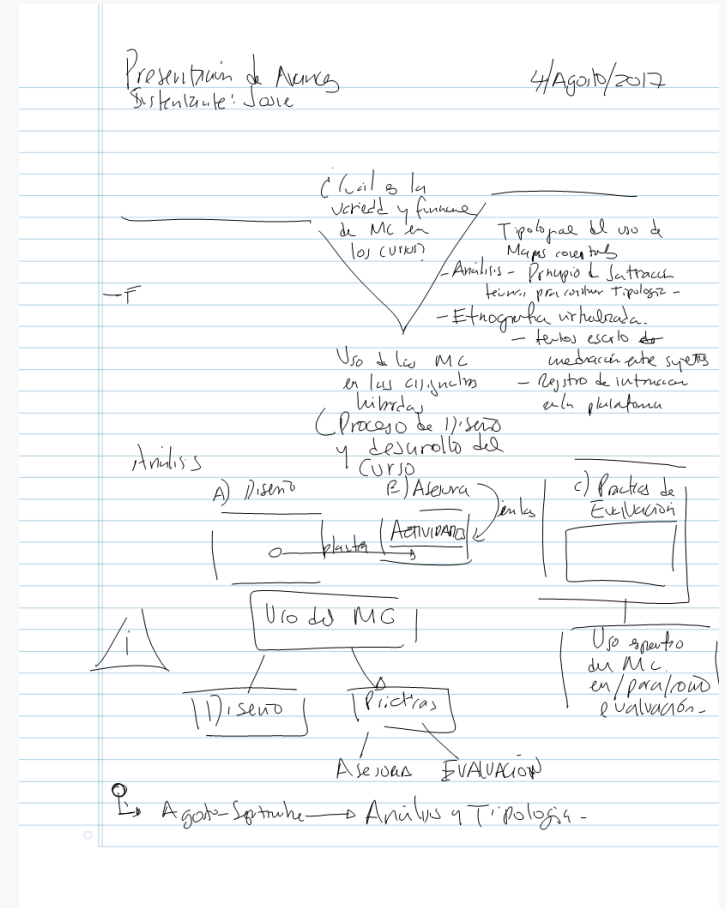 Presentación de Avances
4/Agosto/2017
Sustentante: Josue
¿Cuál es la
variedd y funcione
de MC en
los cursos?
Tipologiae del uso de
Mapas conceptuals
- Análisis - Principio de
para construir Tipologia -
- Etnografia virtualizada.
- textos escrito de
mediación entre sujetos
- Registro de interaccion
en la plataforma
- F
Uso de los MC
en las asignaturas
hibridas
(Proceso de Diseño
y desarrollo del
curso
Análisis
A) Diseño
B) Asesora
en las
C) Practicas de
Evaluación
plasta
ACTIVIDADES
Uso del MC
i
Diseño
Prácticas
Uso especifico
del MC.
en/para/como
evaluación.-
Asesora
EVALUACIÓN
Agosto-Septiembre → Análisis y Tipologia -